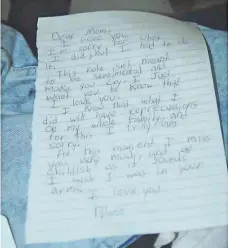 Dear Mom,
I love you.
I'm sorry for what
I did but I had to do
it.
This note isn't
to be sentimental or
make you cry I just
want you to know that
I love you.
I know that what I
did will have repercussions
on my whole family and
for this I truly am
sorry.
At this moment I miss
you very much and as
childish as it sounds
I wish I was in your
arms. I love you